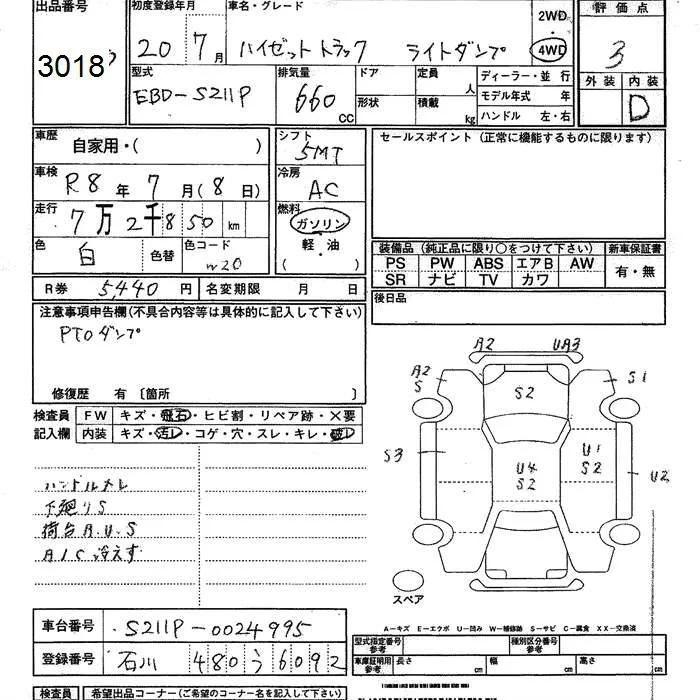 出品番号 初度登録年月 車名・グレード 2WD 評価点
3018 20 7月 ハイゼット トラック ライトダンプ 4WD 3
型式 排気量 ドア 定員 人 ディーラー・並行 外装 内装
EBD-S211P 660 CC 形状 積載 kg モデル年式 年 D
ハンドル 左・右
車歴 自家用・( ) シフト 5MT セールスポイント(正常に機能するものに限ります)
車検 R8年 7月(8日) 冷房 AC
走行 7万2千850km 燃料 ガソリン
色 白 色替 色コード W20 軽・油 ( )
装備品(純正品に限り○をつけて下さい) 新車保証書
PS PW ABS エアB AW 有・無
SR ナビ TV カワ
R券 5,440円 名変期限 月 日 後日品
注意事項申告欄(不具合内容等は具体的に記入して下さい)
PTOダンプ
修復歴 有 〔箇所 〕
検査員 FW キズ・飛石・ヒビ割・リペア跡・×要
記入欄 内装 キズ・汚レ・コゲ・穴・スレ・キレ・破レ
ハンドルスレ
下廻りS
荷台A.U.S
A/C冷えず
A2 UA3
A2 S S1
S2
S3 U1 S2 U2
U4 S2
スペア
A-キズ E-エクボ U-凹み W-補修跡 S-サビ C-腐食 XX-交換済
車台番号 S211P-0024995
登録番号 石川 480う6092
型式指定番号 参考 種別区分番号 参考
車庫証明用 参考 長さ cm 幅 cm 高さ cm
検査員 希望出品コーナー(ご希望のコーナー名を記入して下さい)